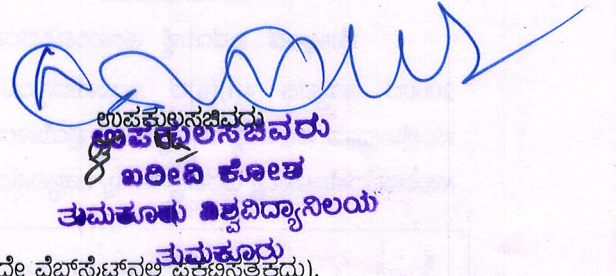 ಉಪಕುಲಸಚಿವರು
ಉಪಕುಲಸಚಿವರು
ಐಡಿವಿ ಕೋಶ
ತುಮಕೂರು ವಿಶ್ವವಿದ್ಯಾನಿಲಯ
ತುಮಕೂರು
ವೆಬ್‌ಸೈಟ್‌ನಲ್ಲಿ ಪ್ರಕಟಿಸತಕ್ಕದ್ದು).